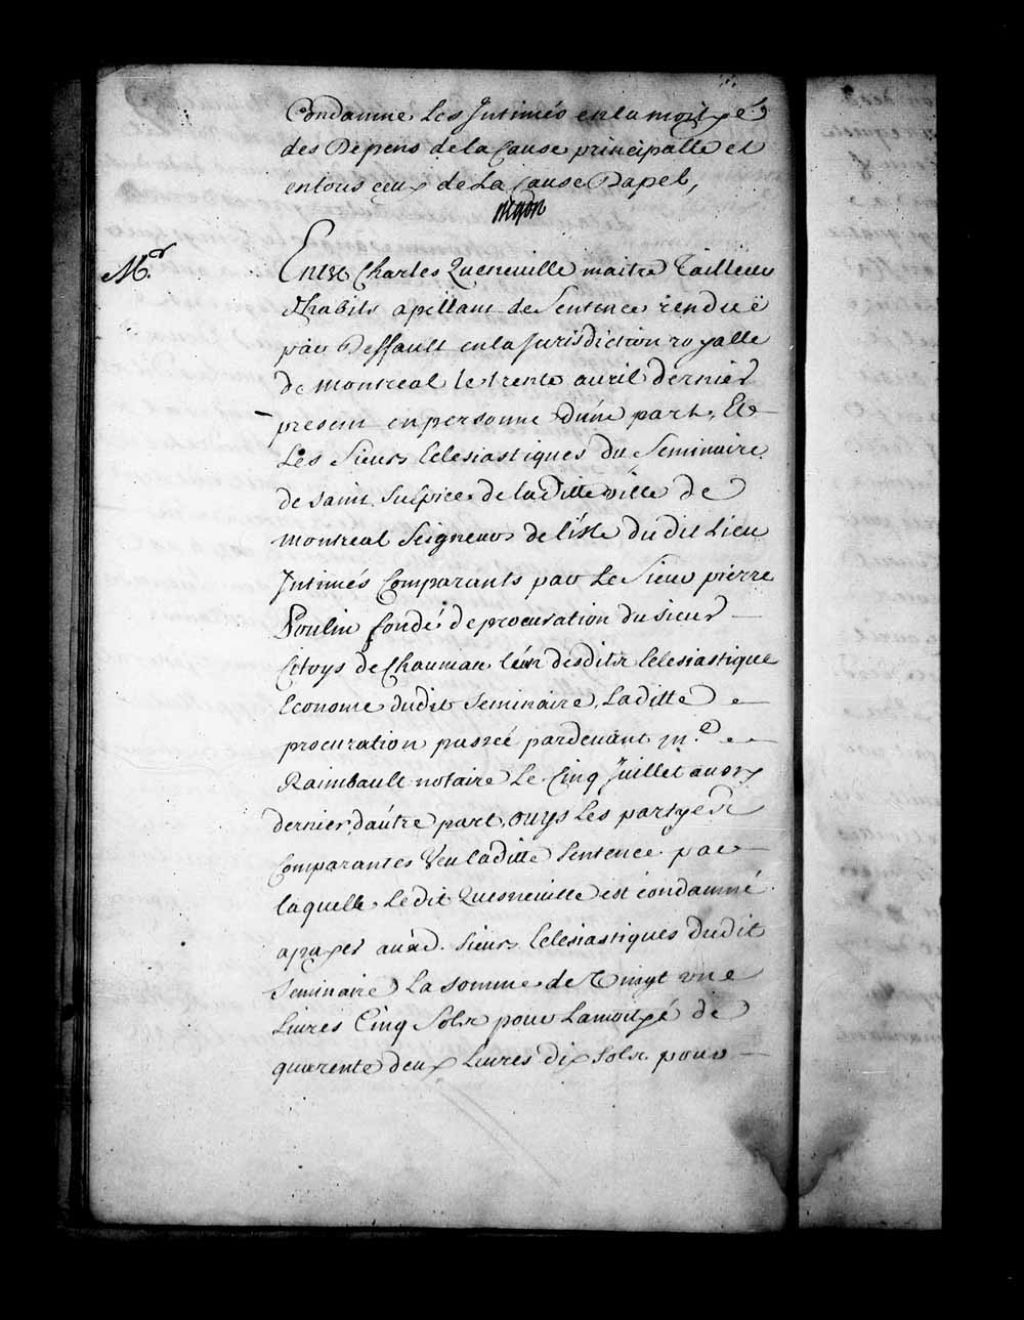 Condamne Les Intimés en la moityé
des Depens de la Cause principalle et
en tous ceux de La Cause Dapel,
Mr
Entre Charles Quesneuille maitre Tailleur
d'habits apellant de Sentence renduë
par Deffault en la Jurisdiction royalle
de montreal le trente auril dernier
present en personne d'une part, Et
Les Sieurs Eclesiastiques du Seminaire
de saint Sulpice de la ditte ville de
montreal Seigneurs de l'isle du dit Lieu
Intimés Comparants par Le Sieur pierre
Poulin fondé de procuration du sieur
Citoys de Chaumau l'un desdits Eclesiastique
Econome dudit Seminaire, Laditte
procuration passeé pardeuant me
Raimbault notaire Le Cinq Juillet aussy
dernier, d'autre part, ouys Les partyes
Comparantes Veu laditte Sentence par
laquelle Ledit Quesneuille est condamné
a payer auxd. Sieurs Eclesiastiques dudit
Seminaire La somme de Vingt une
Liures Cinq Sols pour La moityé de
quarente deux Liures dix sols pour